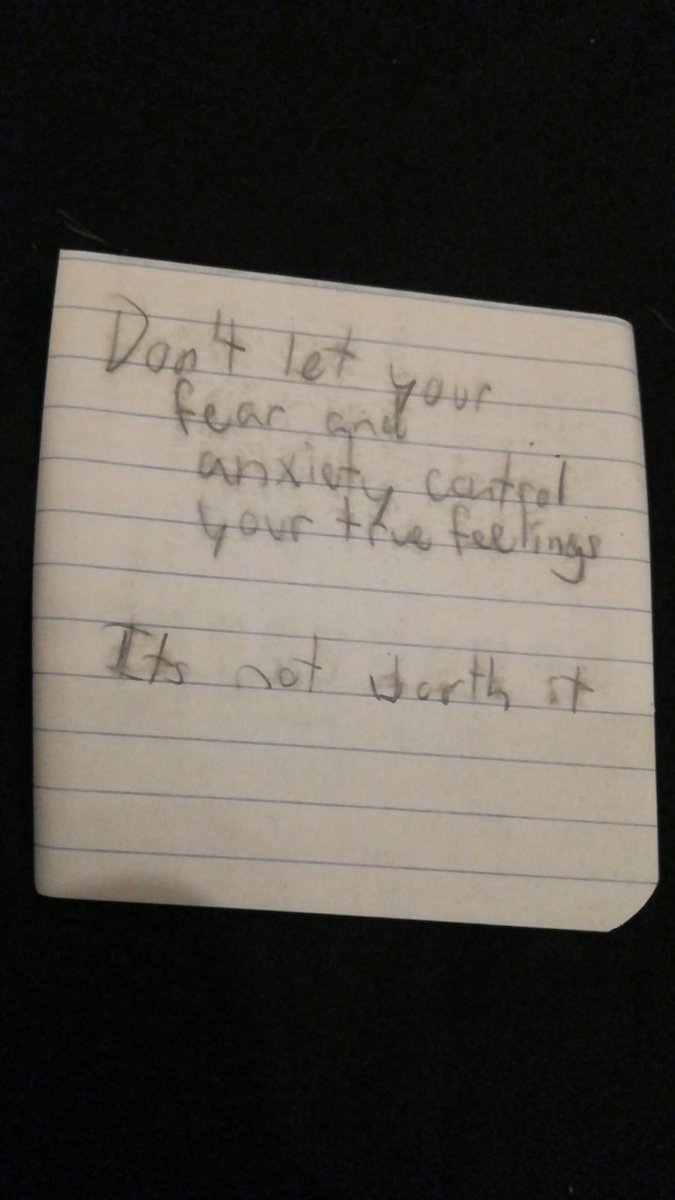 Don't let your
fear and
anxiety control
your true feelings
Its not worth it